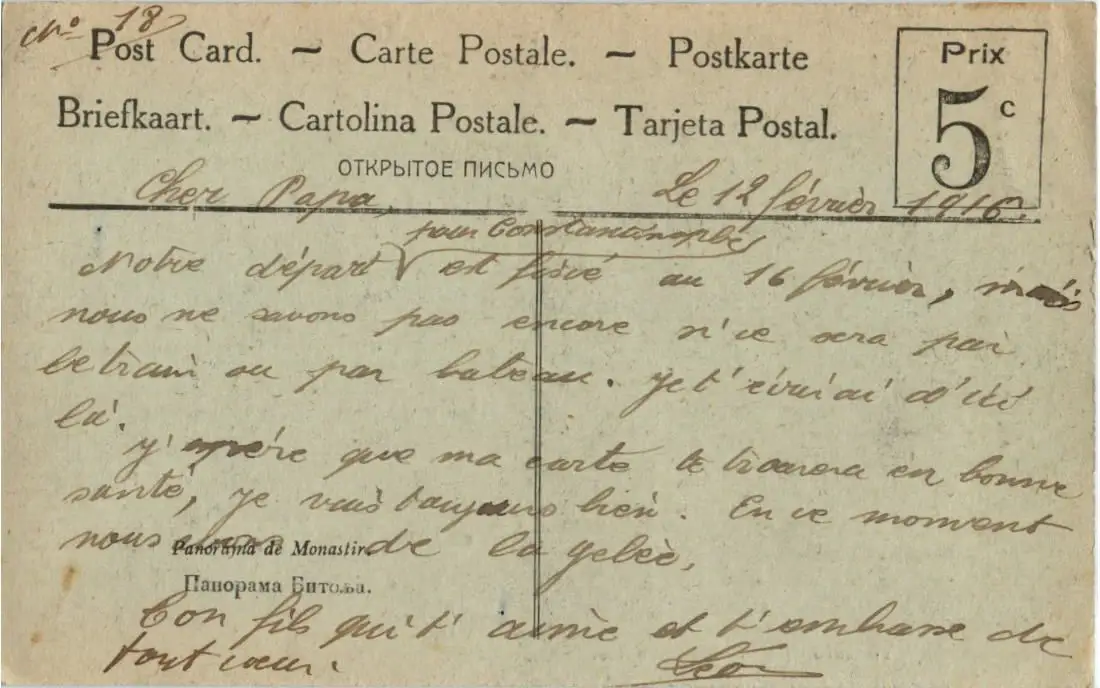 No 18
Post Card. — Carte Postale. — Postkarte
Prix
5 c
Briefkaart. — Cartolina Postale. — Tarjeta Postal.
ОТКРЫТОЕ ПИСЬМО
Cher Papa, Le 12 février 1916.
pour Constantinople
Notre départ est fixé au 16 février, mais
nous ne savons pas encore si ce sera par
le train ou par bateau. Je t'écrirai d'ici
là.
J'espère que ma carte te trouvera en bonne
santé, je vais toujours bien. En ce moment
nous avons de la gelée.
Panorama de Monastir.
Панорама Битоља.
Ton fils qui t'aime et t'embrasse de
tout coeur.
Léon